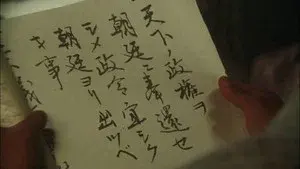 天下ノ政権ヲ
朝廷ニ奉還セ
シメ政令宜シク
朝廷ヨリ出ツベ
キ事